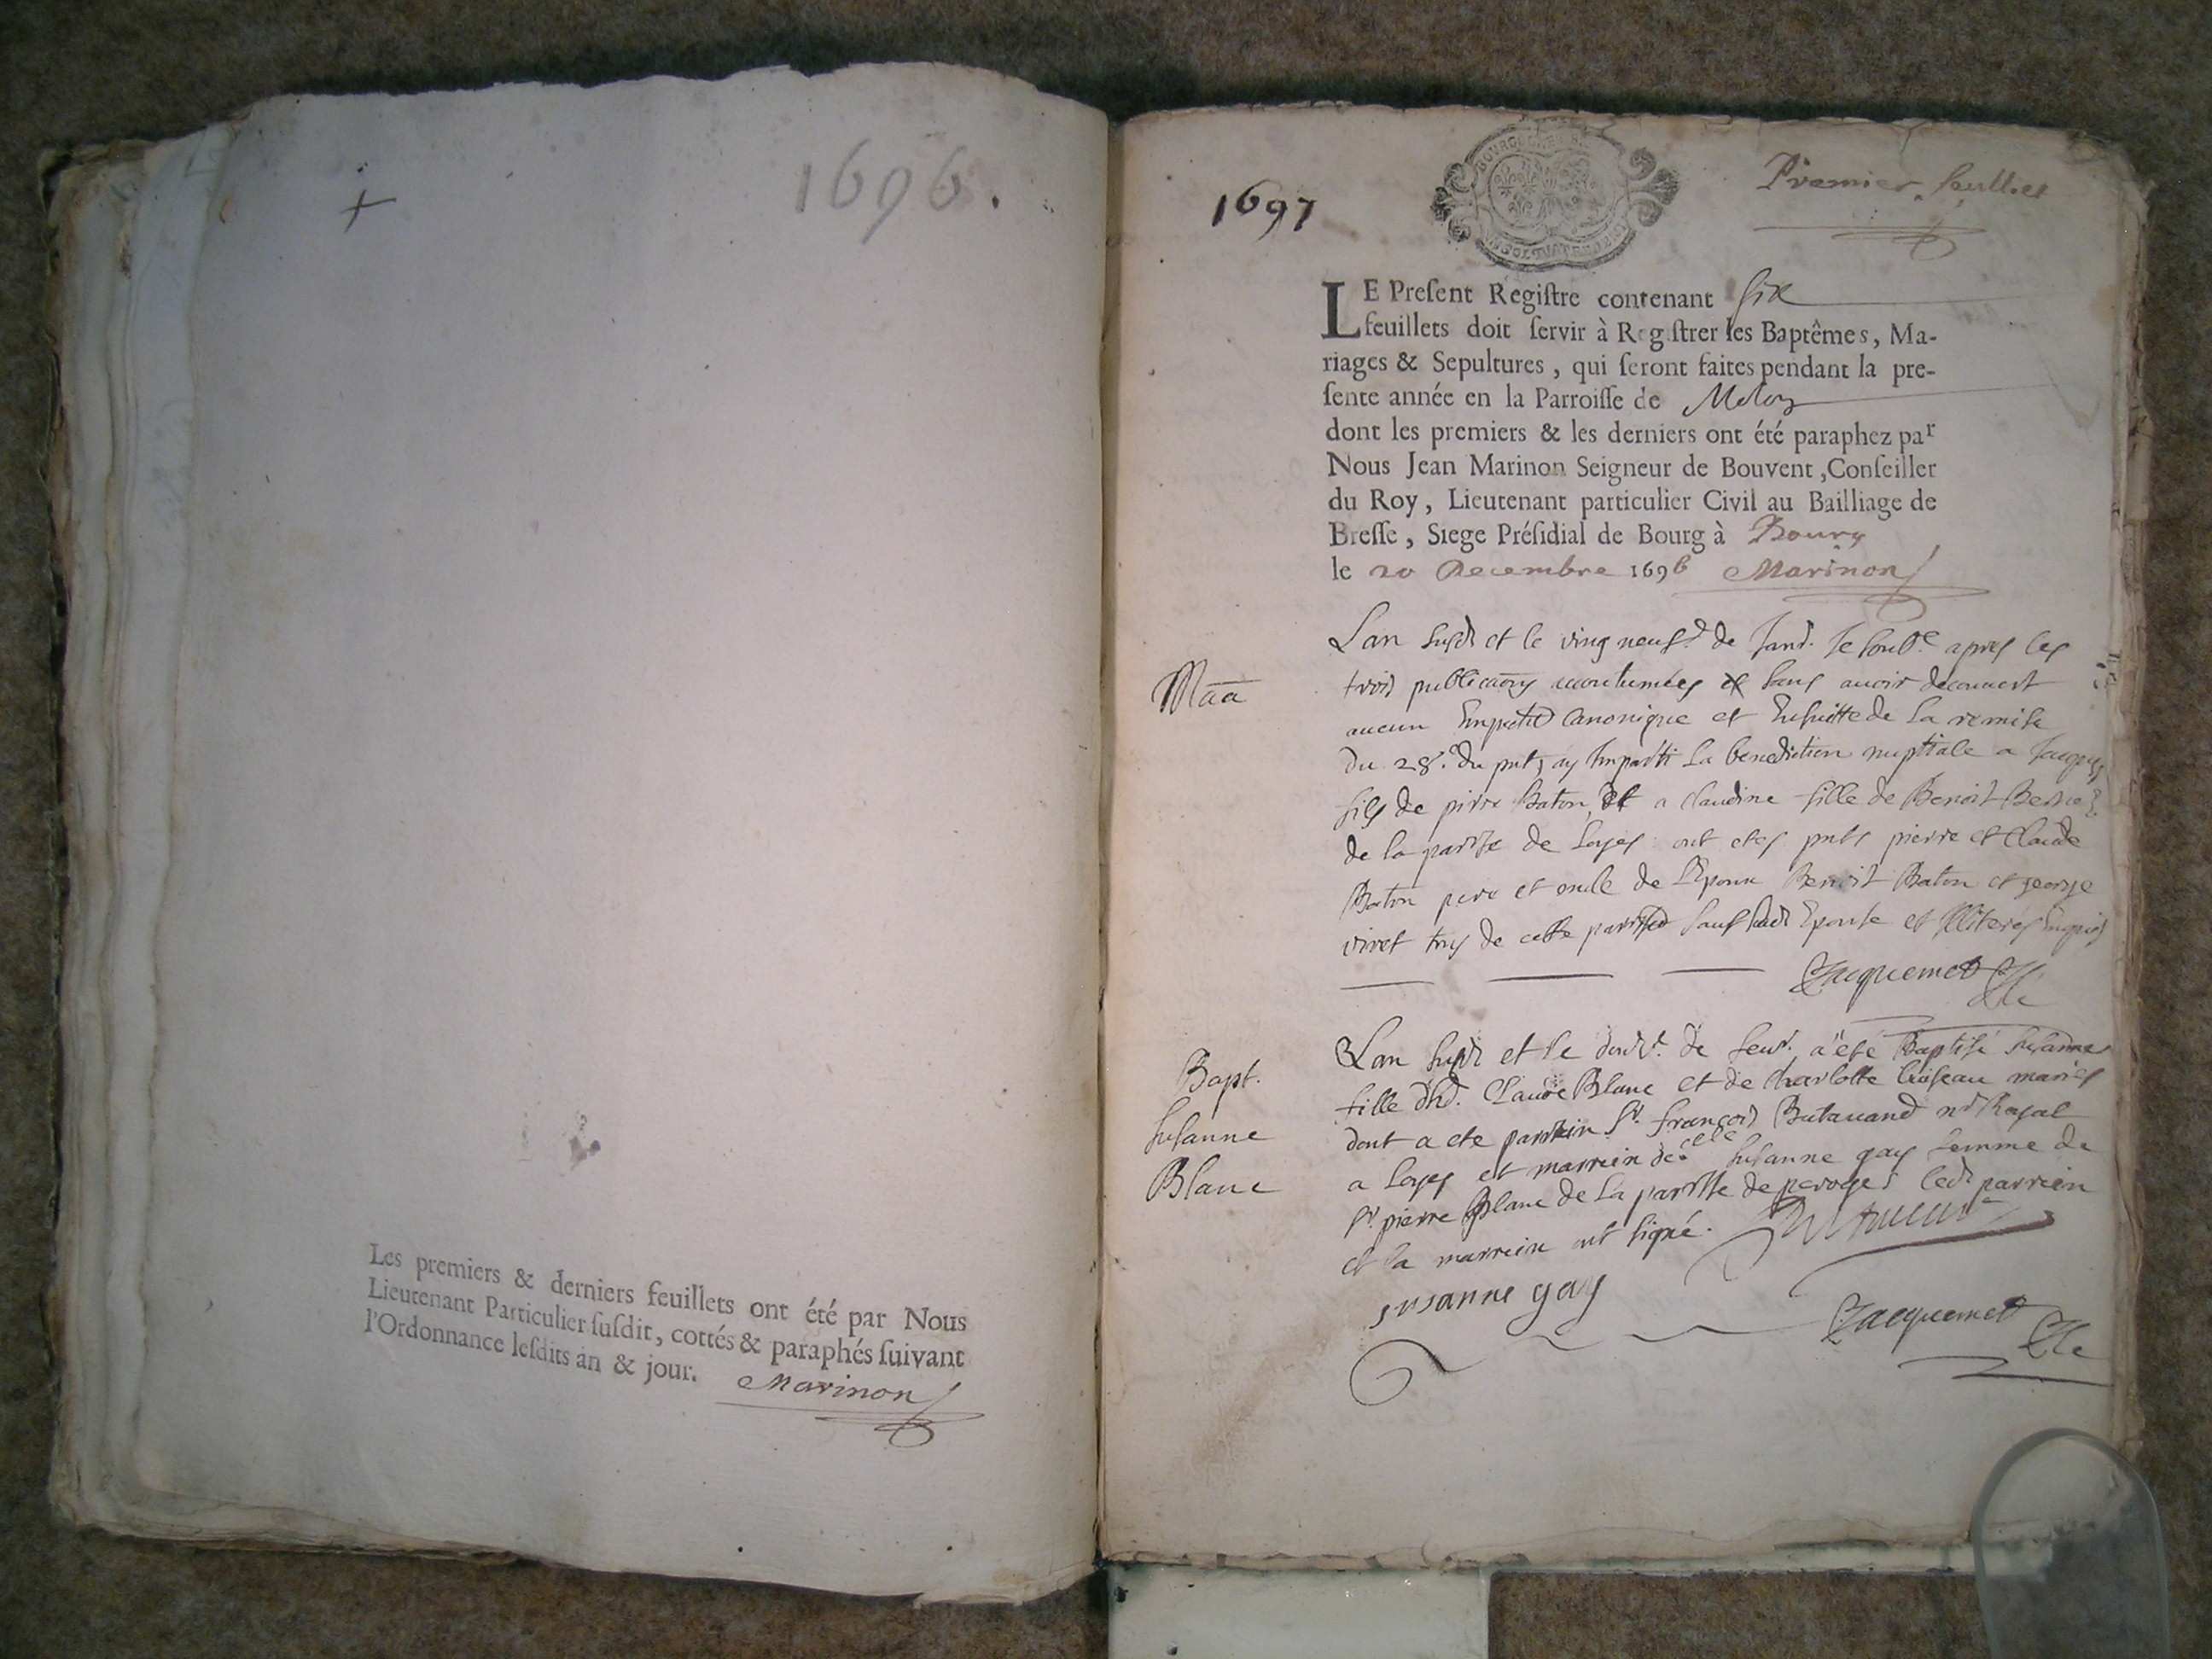 1696.
Les premiers & derniers feuillets ont été par Nous
Lieutenant Particulier ſuſdit, cottés & paraphés ſuivant
l'Ordonnance leſdits an & jour. Marinon
1697
Premier feullet
LE Preſent Regiſtre contenant six
feuillets doit ſervir à Regiſtrer les Baptêmes, Ma-
riages & Sepultures, qui ſeront faites pendant la pre-
ſente année en la Parroiſſe de Moloz
dont les premiers & les derniers ont été paraphez par
Nous Jean Marinon Seigneur de Bouvent, Conſeiller
du Roy, Lieutenant particulier Civil au Bailliage de
Breſſe, Siege Préſidial de Bourg à Bourg
le 20 Decembre 1696 Marinon
Maa
Lan susd et le ving neuf de Janv. Je soub.e apres les
trois publicaons acoutumées et sans avoir decouvert
aucun Empechd canonique et Ensuitte de la remise
du 28.e du pnt, ay Imparti la benediction nuptiale a Jacques
fils de pirre Baton, et a claudine fille de Benoit
de la parisse de Loyes ont etes pnts pierre et Claude
Baton pere et oncle de l'Epoux Benoit Baton et george
vivet tous de cette parisse sauf lad Epouse et Illiterés Enquis
Jacquemet
Bapt.
Susanne
Blanc
Lan susd et le de fevr. a été Baptisé Susanne
fille dhd. Claude Blanc et de Charlotte Loiseau mariés
dont a ete parrein Sr. françois Butavand nre Royal
a Loyes et marrein delle Susanne gay femme de
Sr. pierre Blanc de la parisse de peroges led parrein
et la marreine ont signé. Butavand
susanne gay
Jacquemet